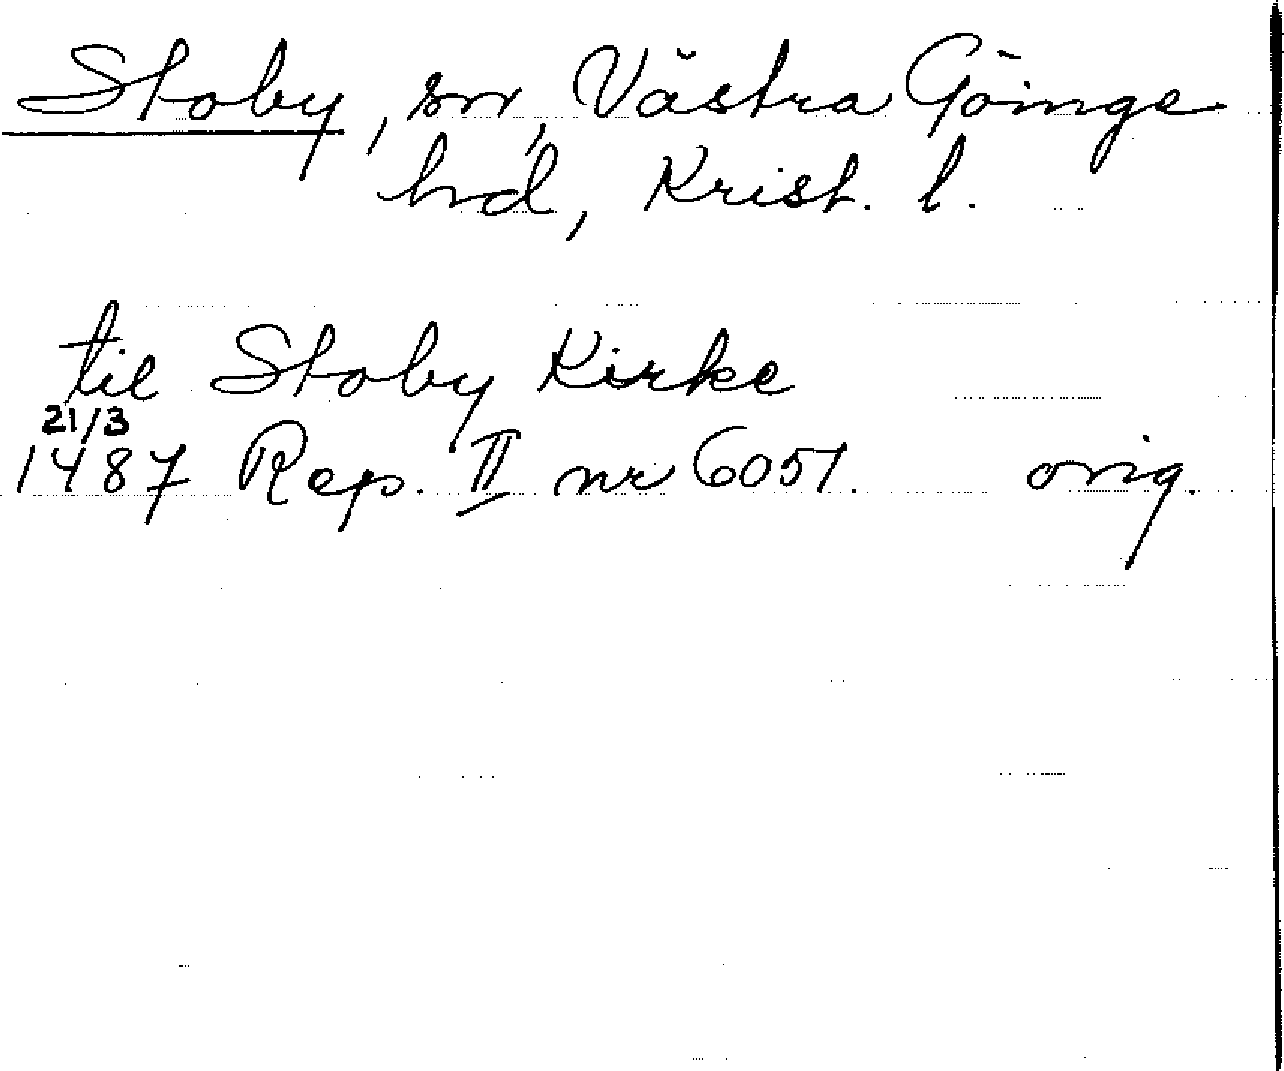 Stoby, sn, Västra Göinge
hd, Krist. l.
til Stoby Kirke
21/3
1487 Rep. II nr 6051. orig.